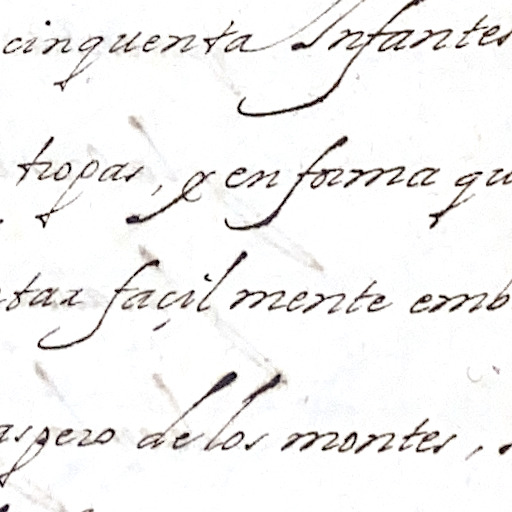 cinquenta Infantes
tropas, y en forma qu
tar façilmente emb
aspero de los montes,